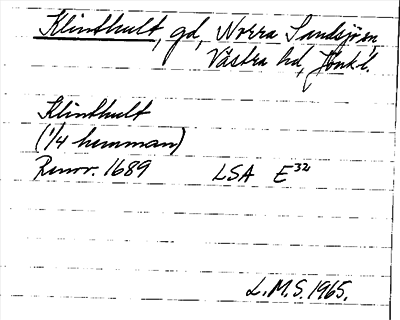 Klinthult, gd, Norra Sandsjö sn,
Västra hd, Jönk.l.
Klinthult
(1/4 hemman)
Renov. 1689 LSA E³²
L.M.S. 1965.